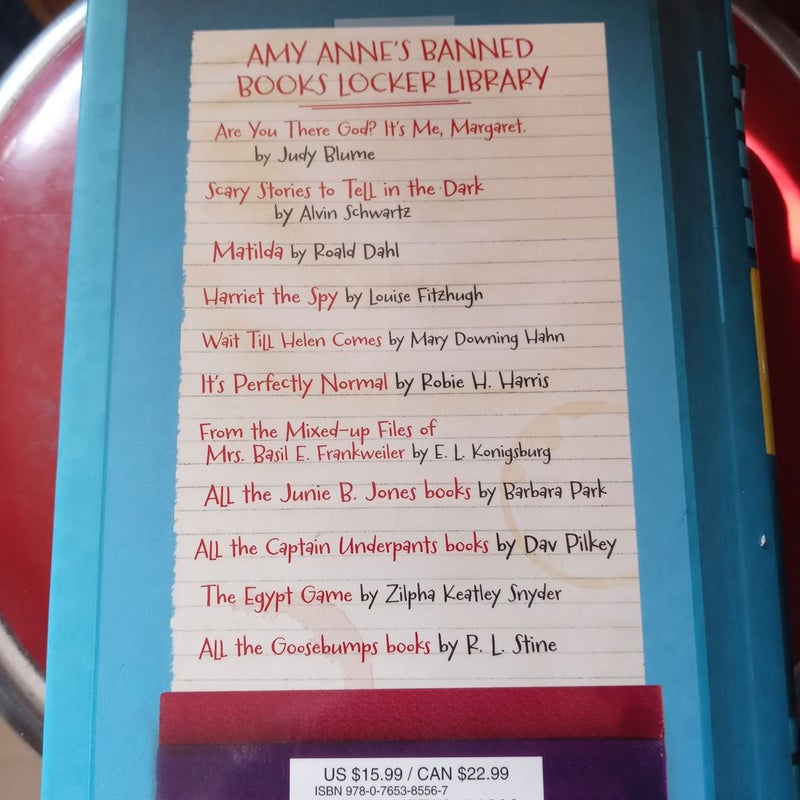 AMY ANNE'S BANNED
BOOKS LOCKER LIBRARY
Are You There God? It's Me, Margaret.
by Judy Blume
Scary Stories to Tell in the Dark
by Alvin Schwartz
Matilda by Roald Dahl
Harriet the Spy by Louise Fitzhugh
Wait Till Helen Comes by Mary Downing Hahn
It's Perfectly Normal by Robie H. Harris
From the Mixed-up Files of
Mrs. Basil E. Frankweiler by E. L. Konigsburg
All the Junie B. Jones books by Barbara Park
All the Captain Underpants books by Dav Pilkey
The Egypt Game by Zilpha Keatley Snyder
All the Goosebumps books by R. L. Stine
US $15.99 / CAN $22.99
ISBN 978-0-7653-8556-7